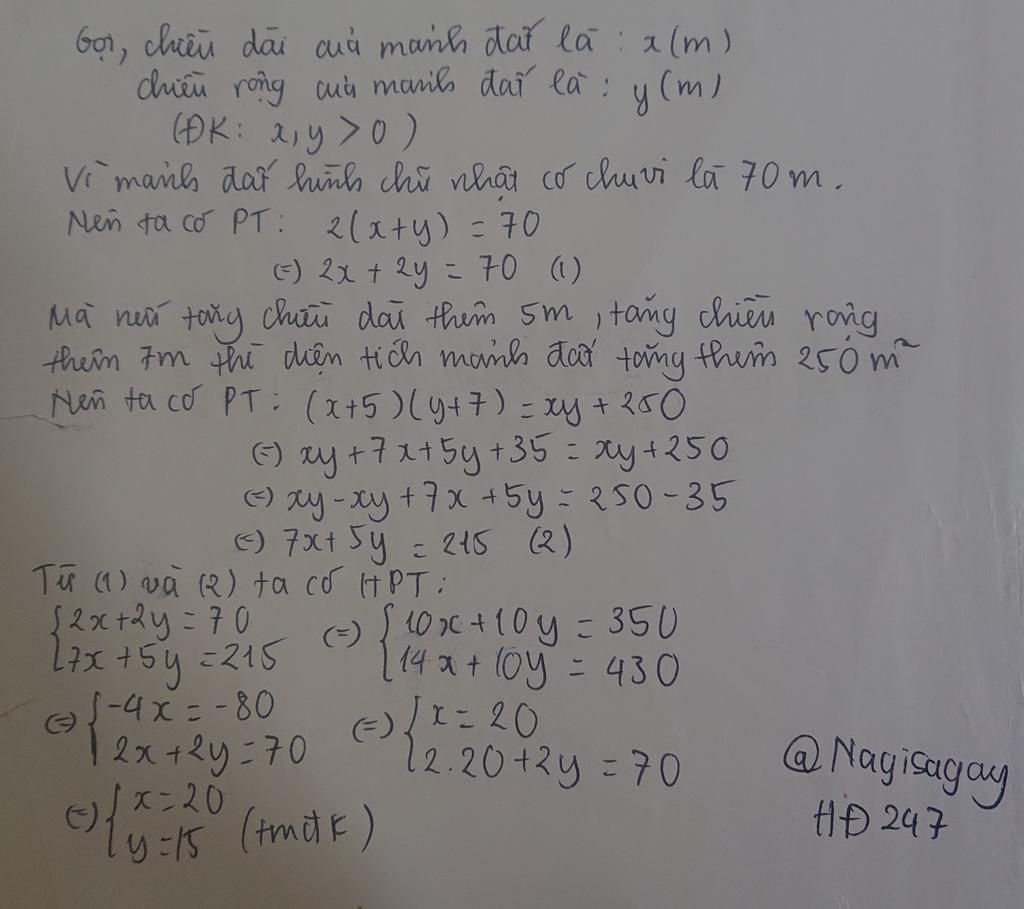 Gọi, chiều dài của mảnh đất là : x(m)
chiều rộng của mảnh đất là : y(m)
(ĐK: x,y > 0 )
Vì mảnh đất hình chữ nhật có chu vi là 70 m .
Nên ta có PT: 2(x+y) = 70
(=) 2x + 2y = 70 (1)
Mà nếu tăng chiều dài thêm 5m , tăng chiều rộng
thêm 7m thì diện tích mảnh đất tăng thêm 250 m²
Nên ta có PT : (x+5)(y+7) = xy + 250
(=) xy + 7x + 5y + 35 = xy + 250
(=) xy - xy + 7x + 5y = 250 - 35
(=) 7x + 5y = 215 (2)
Từ (1) và (2) ta có HPT :
{2x + 2y = 70 (=) {10x + 10y = 350
{7x + 5y = 215 {14x + 10y = 430
(=) {-4x = -80 (=) {x = 20
{2x + 2y = 70 {2.20 + 2y = 70
(=) {x = 20
{y = 15 (tmđk)
@Nagisagay
HĐ 247